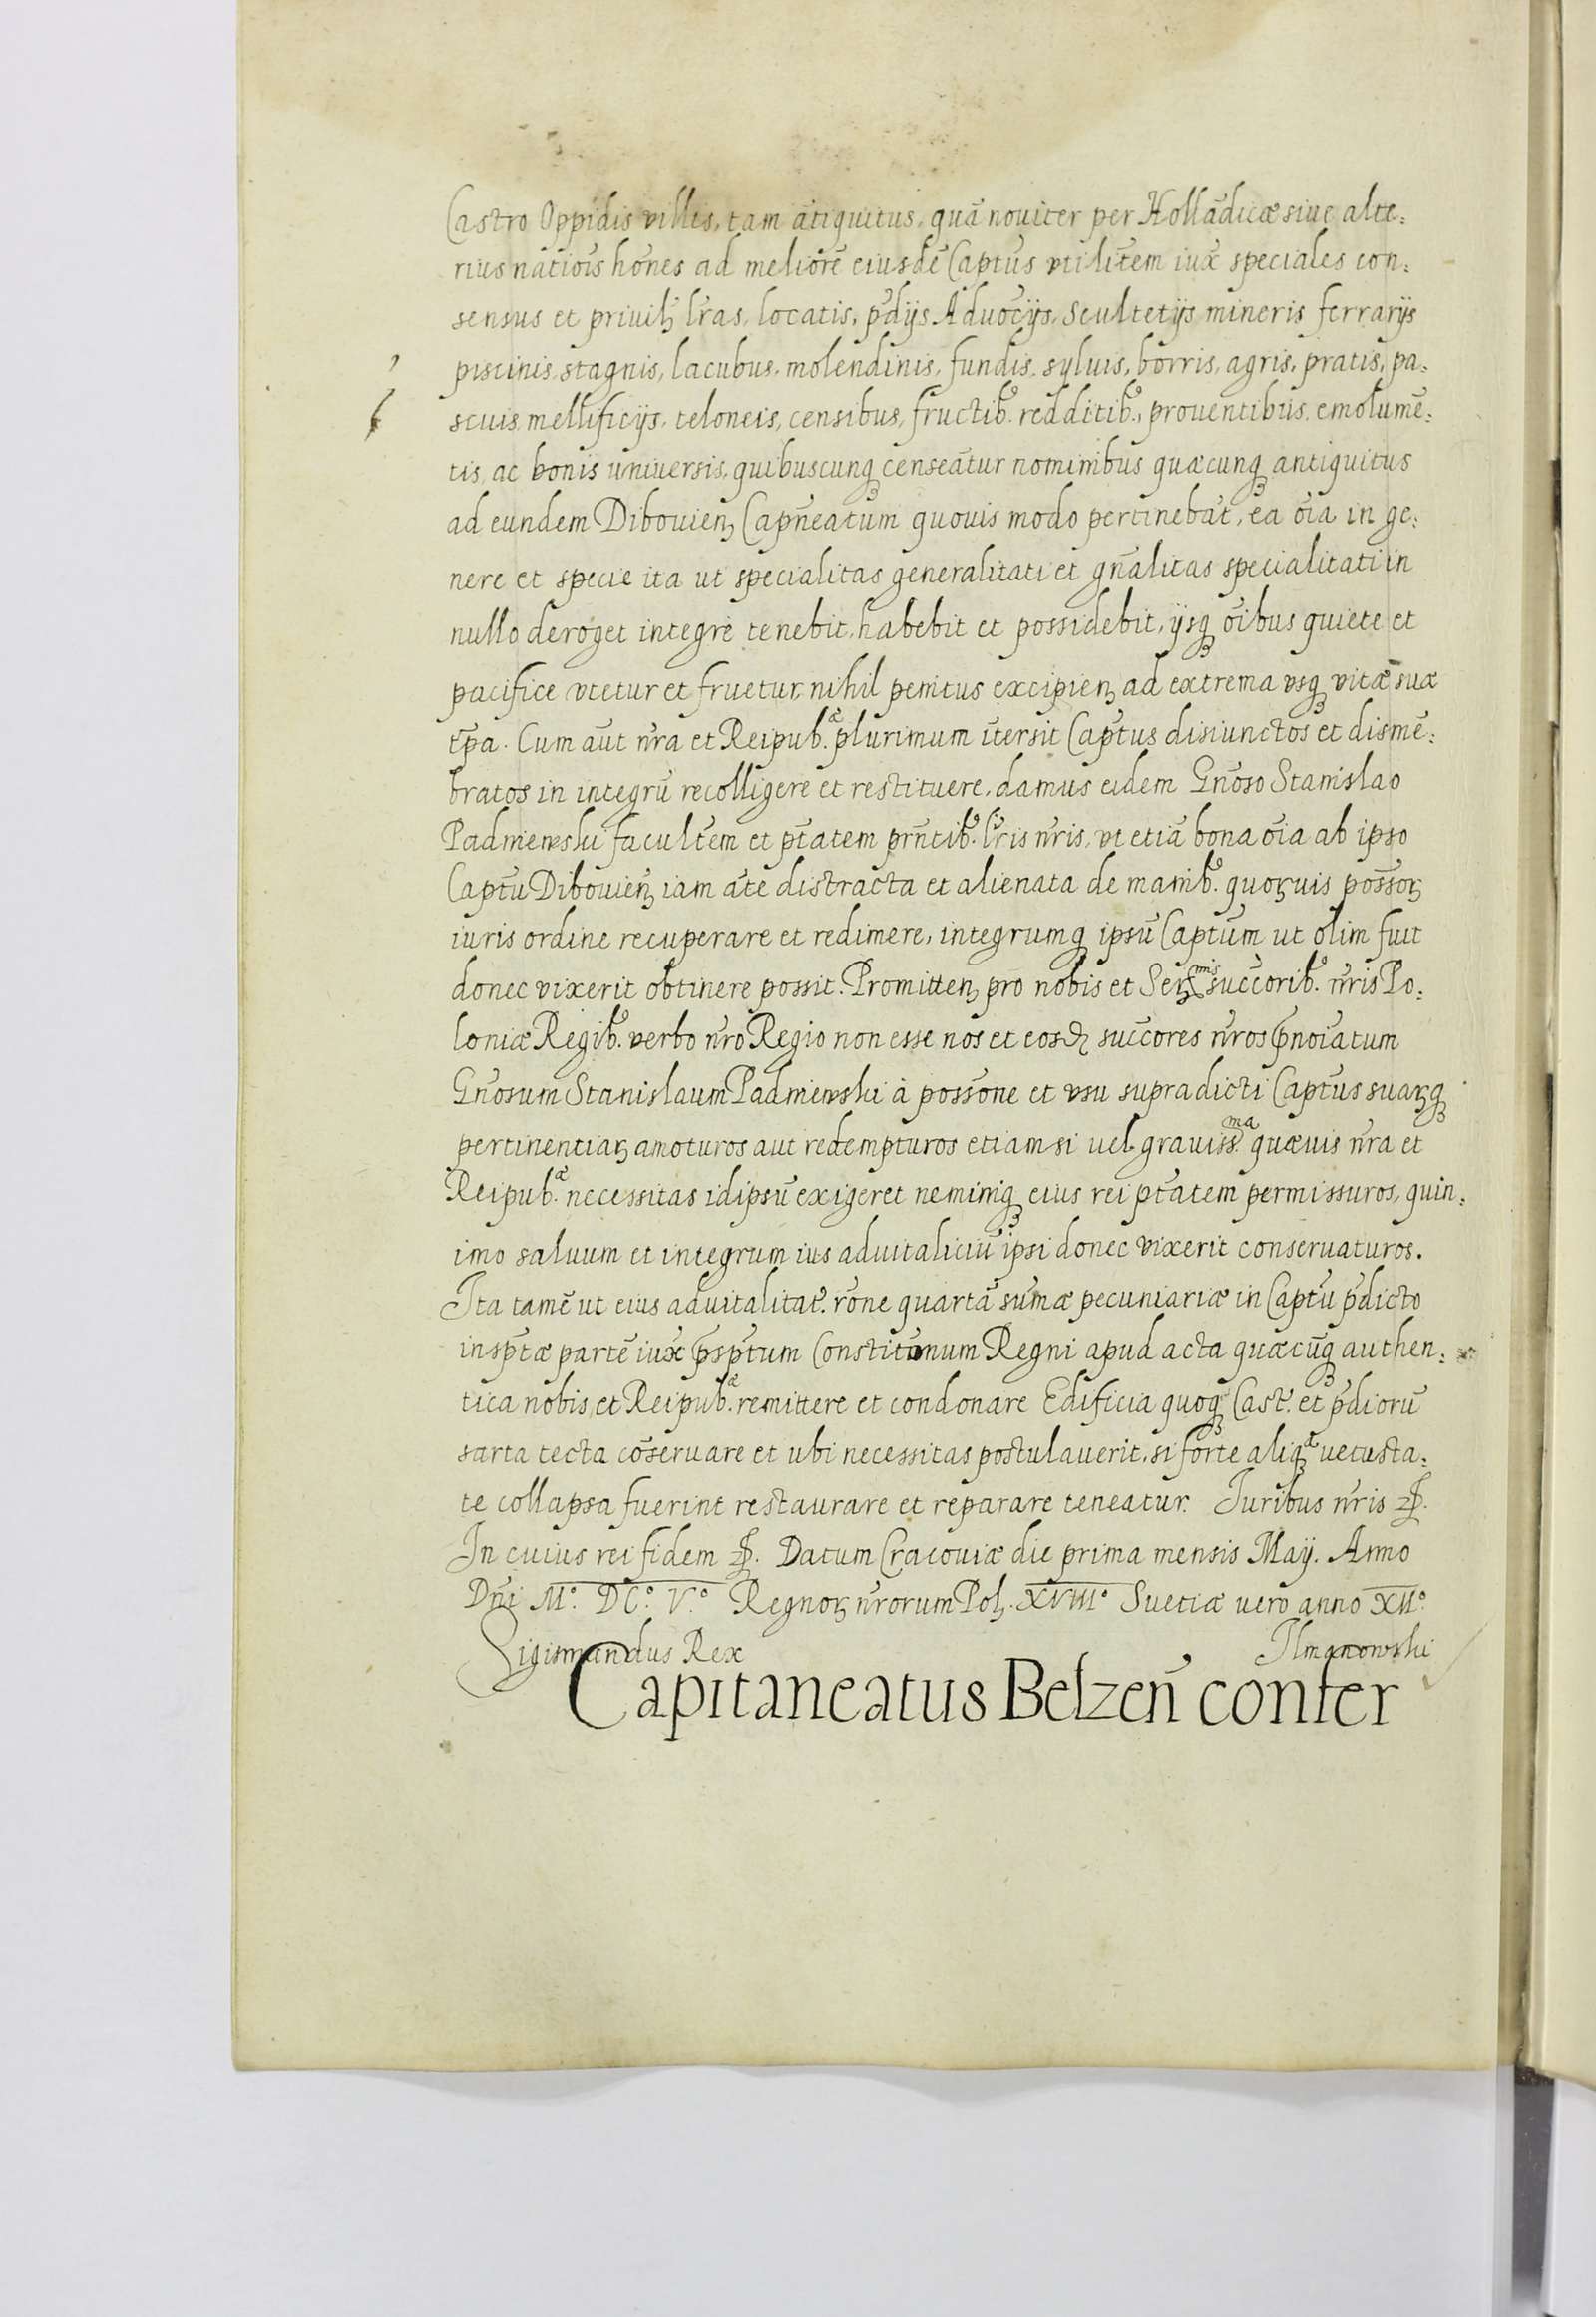 Castro Oppidis villis, tam ātiquitus, quā nouiter per Hollādicæ siue alte:
rius natiōis hōnes ad meliorē eiusdē Captūs vtilitēm iuxᷓ speciales con:
sensus et priuilꝫ lr̄as, locatis, p̄dijs Aduoc̄ijs, Scultetijs mineris ferrarijs
piscinis, stagnis, lacubus, molendinis, fundis, syluis, borris, agris, pratis, pa:
scuis, mellificijs, teloneis, censibus, fructib⁹. redditib⁹., prouentibus, emolumē:
tis, ac bonis vniuersis, quibuscunqꝫ censeātur nominibus quæcunqꝫ antiquitus
ad eundem Dibouienꝫ Capn̄eatum quouis modo pertinebāt, ea oīa in ge:
nere et specie ita ut specialitas generalitati et gn̄alitas specialitati in
nullo deroget integrè tenebit, habebit et possidebit, ijsqꝫ oībus quiete et
pacifice vtetur et fruetur, nihil penitus excipienꝫ ad extrema vsqꝫ vitæ suæ
tp̄a. Cum aūt nr̄a et Reipub.æ plurimum ītersit Captūs disiunctos et dismē:
bratos in integrū recolligere et restituere, damus eidem Gn̄oso Stanislao
Padniewski facultēm et ptātem pn̄tib⁹. lr̄is nr̄is, vt etiā bona oīa ab ipso
Captū Dibouienꝫ iam āte distracta et alienata de manib⁹. quorꝫuis possorꝫ
iuris ordine recuperare et redimere, integrumqꝫ ipsū Captūm ut olim fuit
donec vixerit obtinere possit. Promittenꝫ pro nobis et Serꝫmis succorib⁹. nr̄is Po:
loniæ Regib⁹. verbo nr̄o Regio non esse nos et eosdꝫ succores nr̄os p̄noīatum
Gn̄osum Stanislaum Padniewski à possōne et vsu supradicti Captūs suarꝫqꝫ
pertinentiarꝫ amoturos aut redempturos etiamsi uel grauiss.ma quæuis nr̄a et
Reipub.æ necessitas idipsū exigeret neminiqꝫ eius rei ptātem permissuros, quin:
imo saluum et integrum ius aduitaliciū ipsi donec vixerit conseruaturos.
Ita tamē ut eius aduitalitat̄. rōne quartā sum̄æ pecuniariæ in Captū p̄dicto
inscptæ partē iuxᷓ p̄sptum Constitūonum Regni apud acta quæcūqꝫ authen:
tica nobis et Reipub.æ remittere et condonare Edificia quoqꝫ Cast̄. et p̄diorū
sarta tecta cōseruare et ubi necessitas postulauerit, si forte aliqꝫᵃ uetusta:
te collapsa fuerint restaurare et reparare teneatur. Iuribus nr̄is ꝛꝭ.
In cuius rei fidem ꝛꝭ. Datum Cracouiæ die prima mensis Maij. Anno
Dn̄i M°. DC°. V.° Regnorꝫ nr̄orum Polꝫ. XVIII° Suetiæ uero anno XII°.
Sigismundus Rex Ilmanowski
Capitaneatus Belzen̄ confer